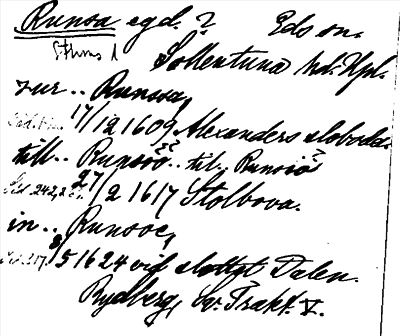 Runsa egd. ? Eds sn.
Sthms l
Sollentuna hd. Upl.
zur .. Runssa,
17/12 1609, Alexanders sloboda.
till .. Runsiö .. til. Runsiö
Sid. 242, 27/2 1617 Stolbova.
in .. Runsoe,
Sid. 217. 8/5 1624 vid slottet Dalen.
Rydberg, Sv. Trakt. V.